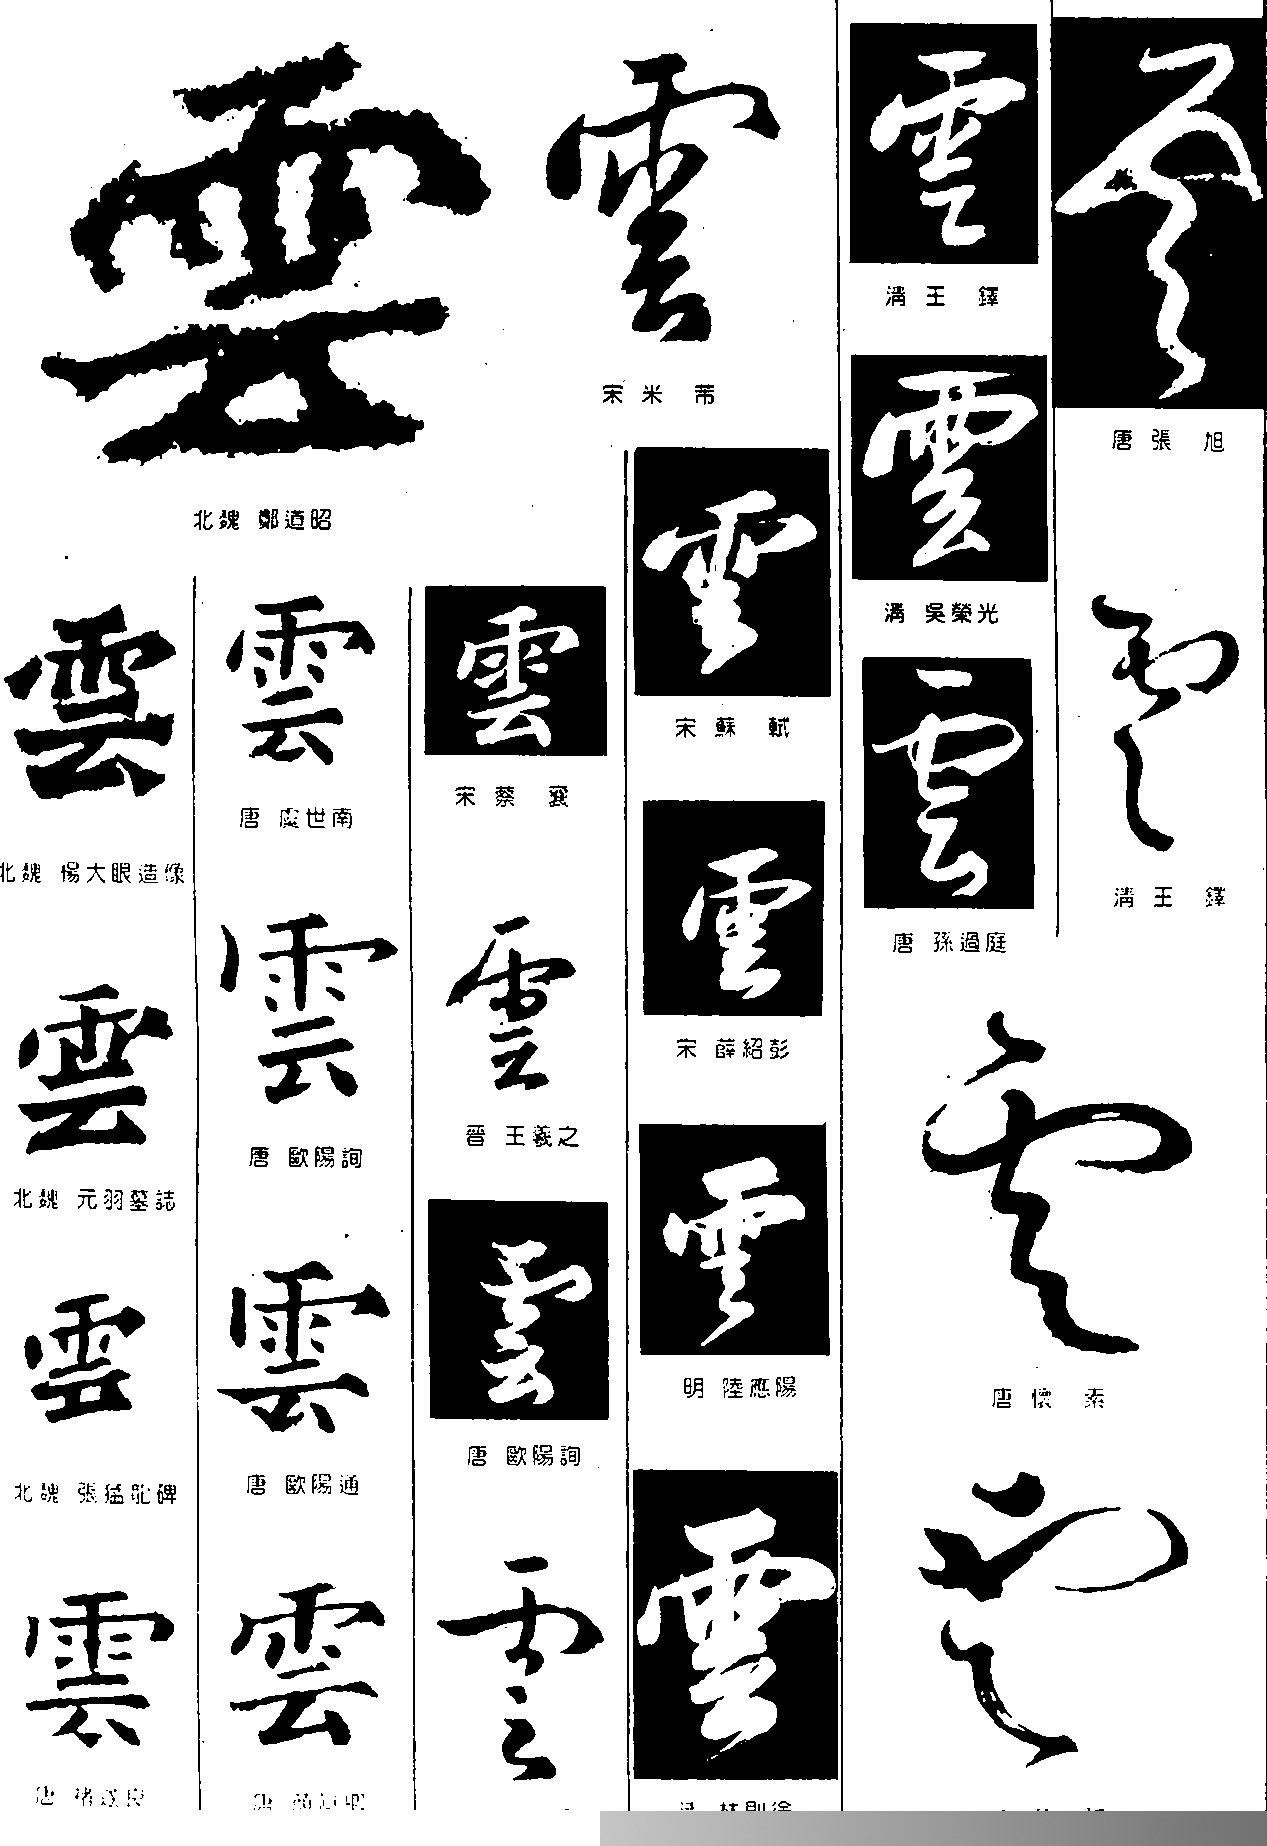 雲
北魏 鄭道昭
雲
宋 米 芾
雲
清 王 鐸
雲
唐 張 旭
雲
清 吳榮光
雲
宋 蘇 軾
雲
清 王 鐸
雲
唐 孫過庭
雲
北魏 楊大眼造像
雲
唐 虞世南
雲
宋 蔡 襄
雲
宋 薛紹彭
雲
北魏 元羽墓誌
雲
唐 歐陽詢
雲
晉 王羲之
雲
明 陸應陽
雲
唐 懷 素
雲
北魏 張猛龍碑
雲
唐 歐陽通
雲
唐 歐陽詢
雲
清 林則徐
雲
唐 褚遂良
雲
唐 顏真卿
雲
雲